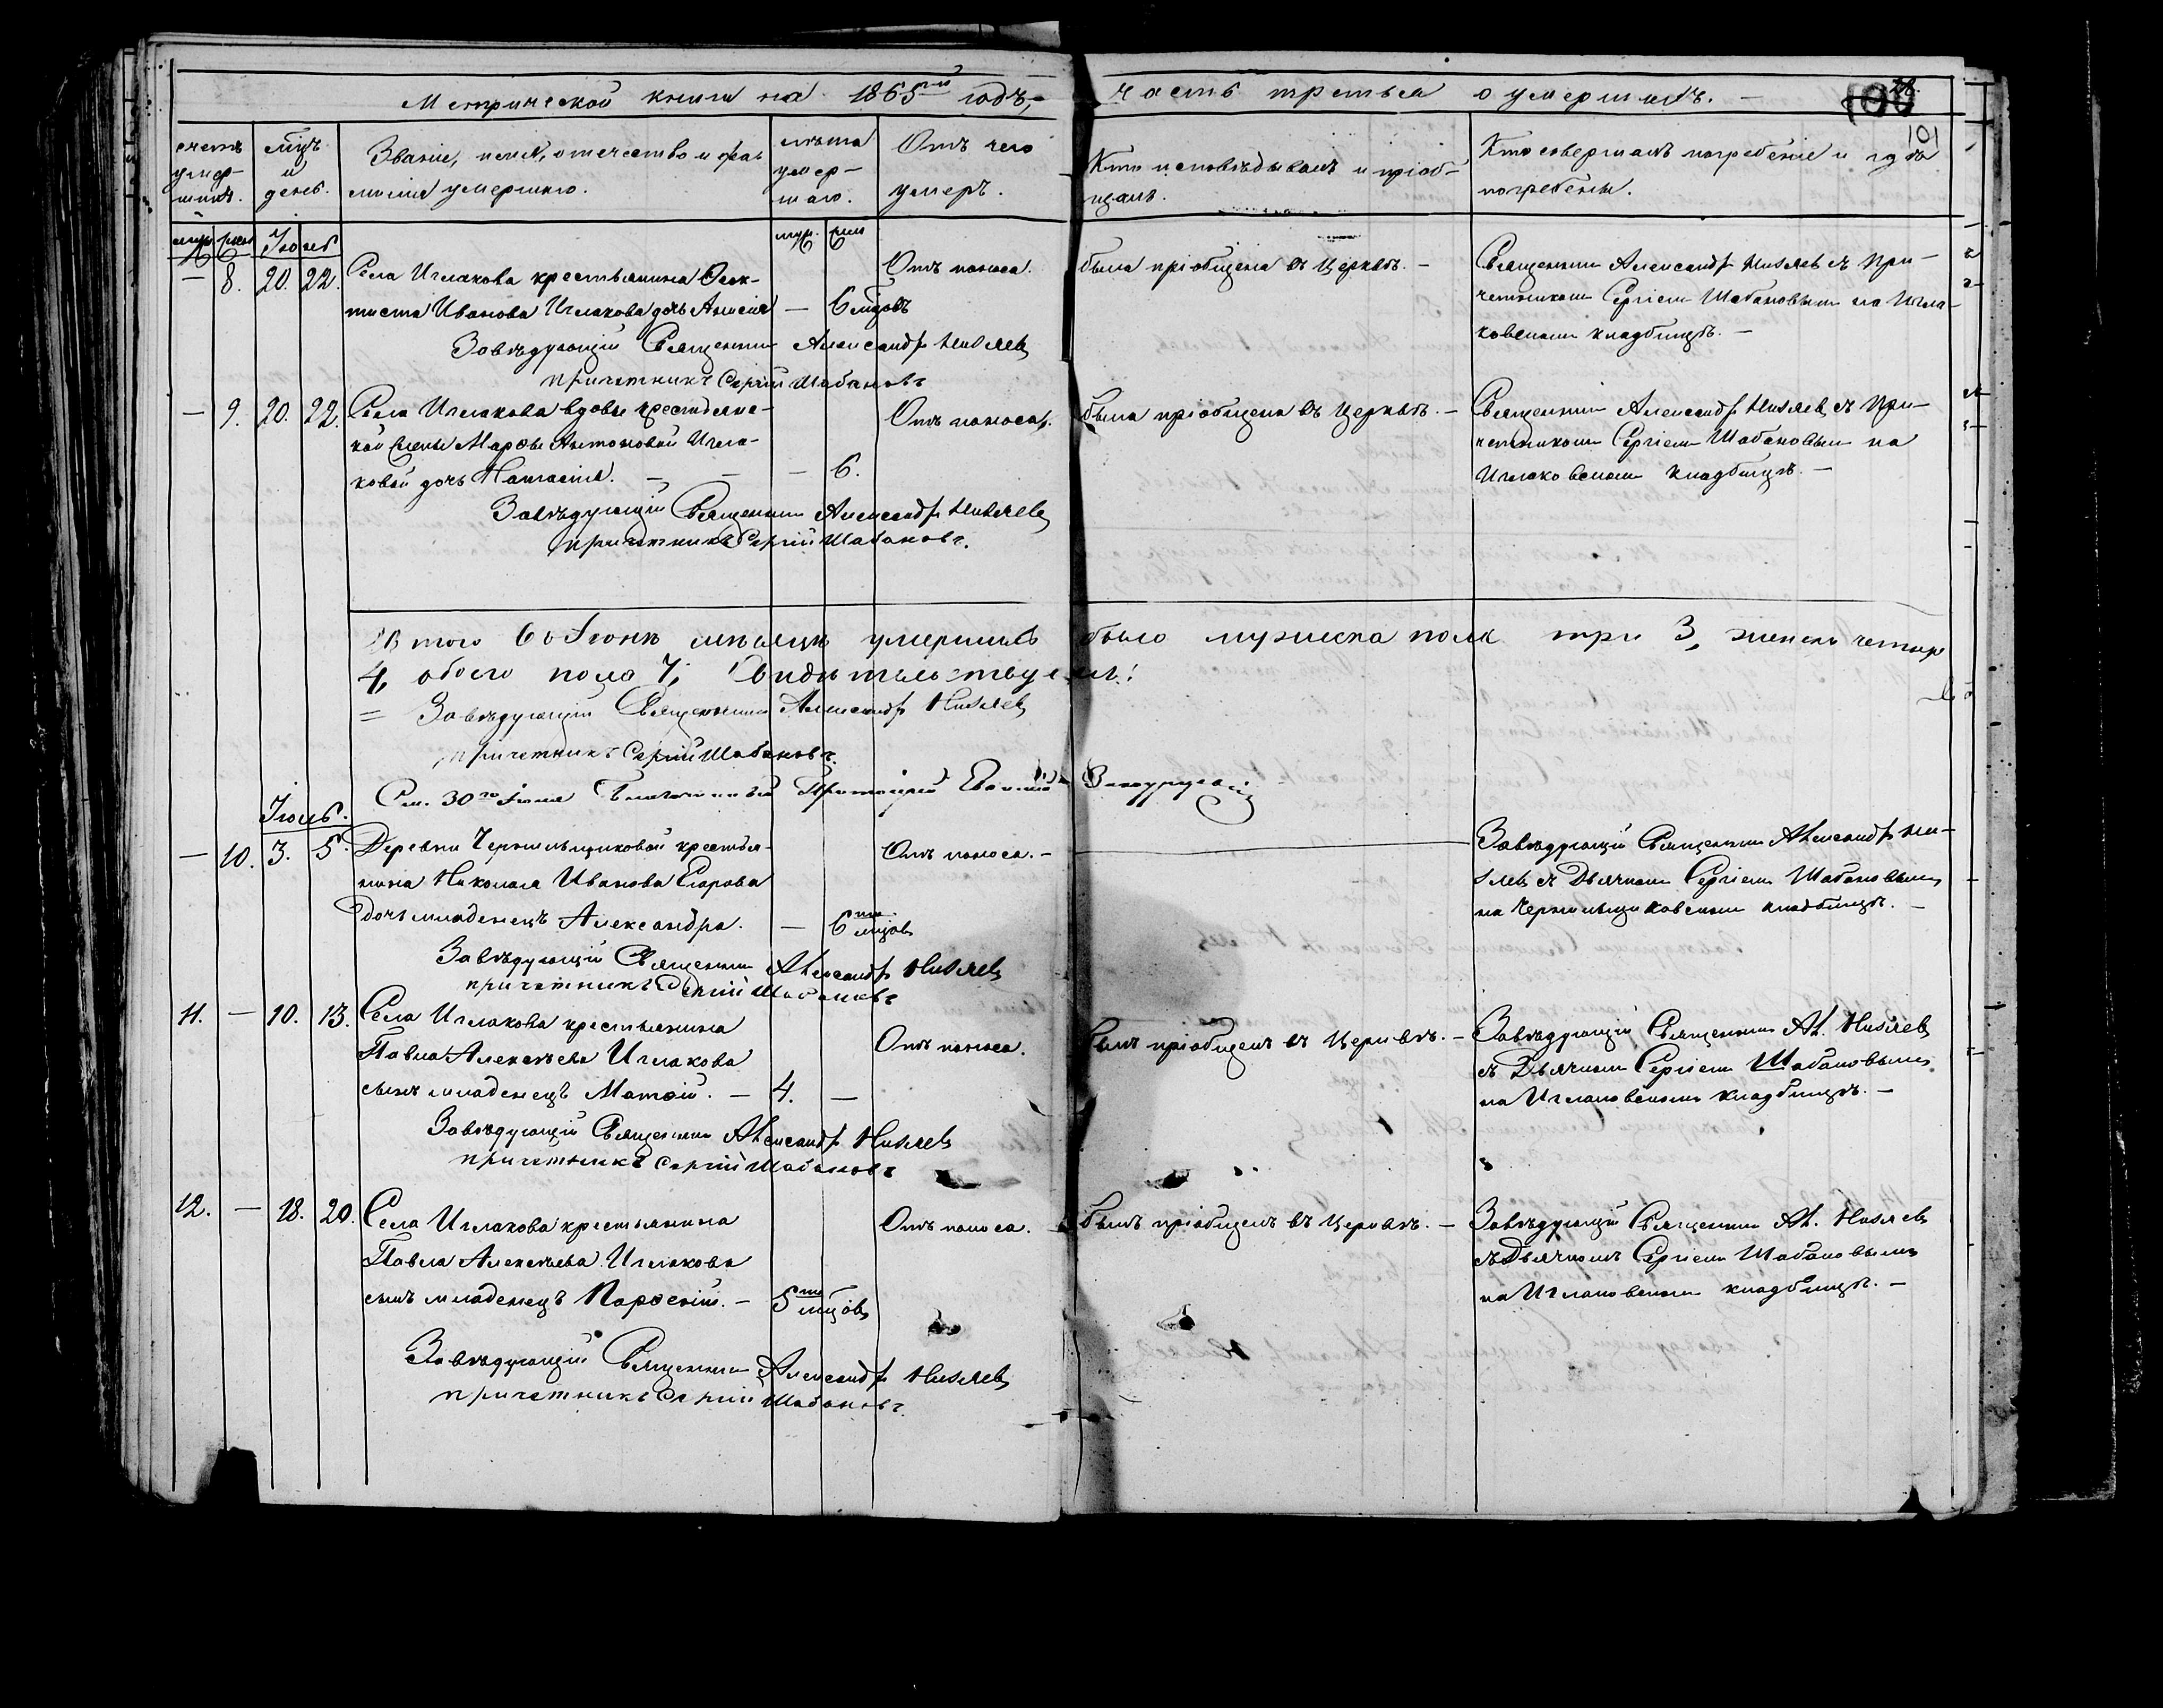 Метрической книги на 1865й годъ, часть третья о умершихъ.
28.
100
101
счетъ умер-шихъ.
мцъ и день.
Званіе, имя, отечество и фа-
милія умершаго.
лѣта умер-шаго.
Отъ чего умеръ.
Кто исповѣдывалъ и пріоб-
щалъ.
Кто совершалъ погребеніе и гдѣ
погребены.
муж. жен Іюнь муж. жен
— 8. 20. 22. Села Иглакова крестьянина Θеок-
тиста Иванова Иглакова дочь Анисія — 6 мцовъ
Отъ поноса.
была пріобщена въ Церквѣ. —
Священникъ Александръ с При-
четникомъ Сергіемъ Шабановымъ на Игла-
ковскомъ кладбищѣ. —
Завѣдующій Священникъ Александръ
причетникъ Сергій Шабановъ
— 9. 20. 22. Села Иглакова вдовы крестьянс-
кой жены Марθы Антоновой Игла-
ковой дочь Настасія. — — — 6.
Отъ поноса.
была пріобщена въ Церквѣ. —
Священникъ Александръ съ При-
четникомъ Сергіемъ Шабановымъ на
Иглаковскомъ кладбищѣ. —
Завѣдующій Священникъ Александръ
причетникъ Сергій Шабановъ.
того Во Іюнѣ мѣсяцѣ умершихъ было мужеска пола три 3, женска четыре
4, обоего пола 7; Свидѣтельствуемъ:
= Завѣдующій Священникъ Александръ
причетникъ Сергій Шабановъ.
См. 30го Іюля Благочинный Протоіерей Евфимій
Іюль.
— 10. 3. 5. Деревни Чернильщиковой крестья-
нина Николая Иванова Егорова
дочь младенецъ Александра. — 6ти мцовъ
Отъ поноса. —
Завѣдующій Священникъ Александръ
съ Дьячкомъ Сергіемъ Шабановымъ
на Чернильщиковскомъ кладбищѣ. —
Завѣдующій Священникъ Александръ
причетникъ Сергій Шабановъ
11. — 10. 13. Села Иглакова крестьянина
Павла Алексѣева Иглакова
сынъ младенецъ Матθій. — 4. —
Отъ поноса.
былъ пріобщенъ въ Церквѣ. —
Завѣдующій Священникъ Ал.
съ Дьячкомъ Сергіемъ Шабановымъ
на Иглаковскомъ кладбищѣ. —
Завѣдующій Священникъ Александръ
причетникъ Сергій Шабановъ
12. — 18. 20. Села Иглакова крестьянина
Павла Алексѣева Иглакова
сынъ младенецъ Парθеній. — 5ти мцовъ
Отъ поноса.
былъ пріобщенъ въ Церквѣ. —
Завѣдующій Священникъ Ал.
съ Дьячкомъ Сергіемъ Шабановымъ
на Иглаковскомъ кладбищѣ. —
Завѣдующій Священникъ Александръ
причетникъ Сергій Шабановъ.